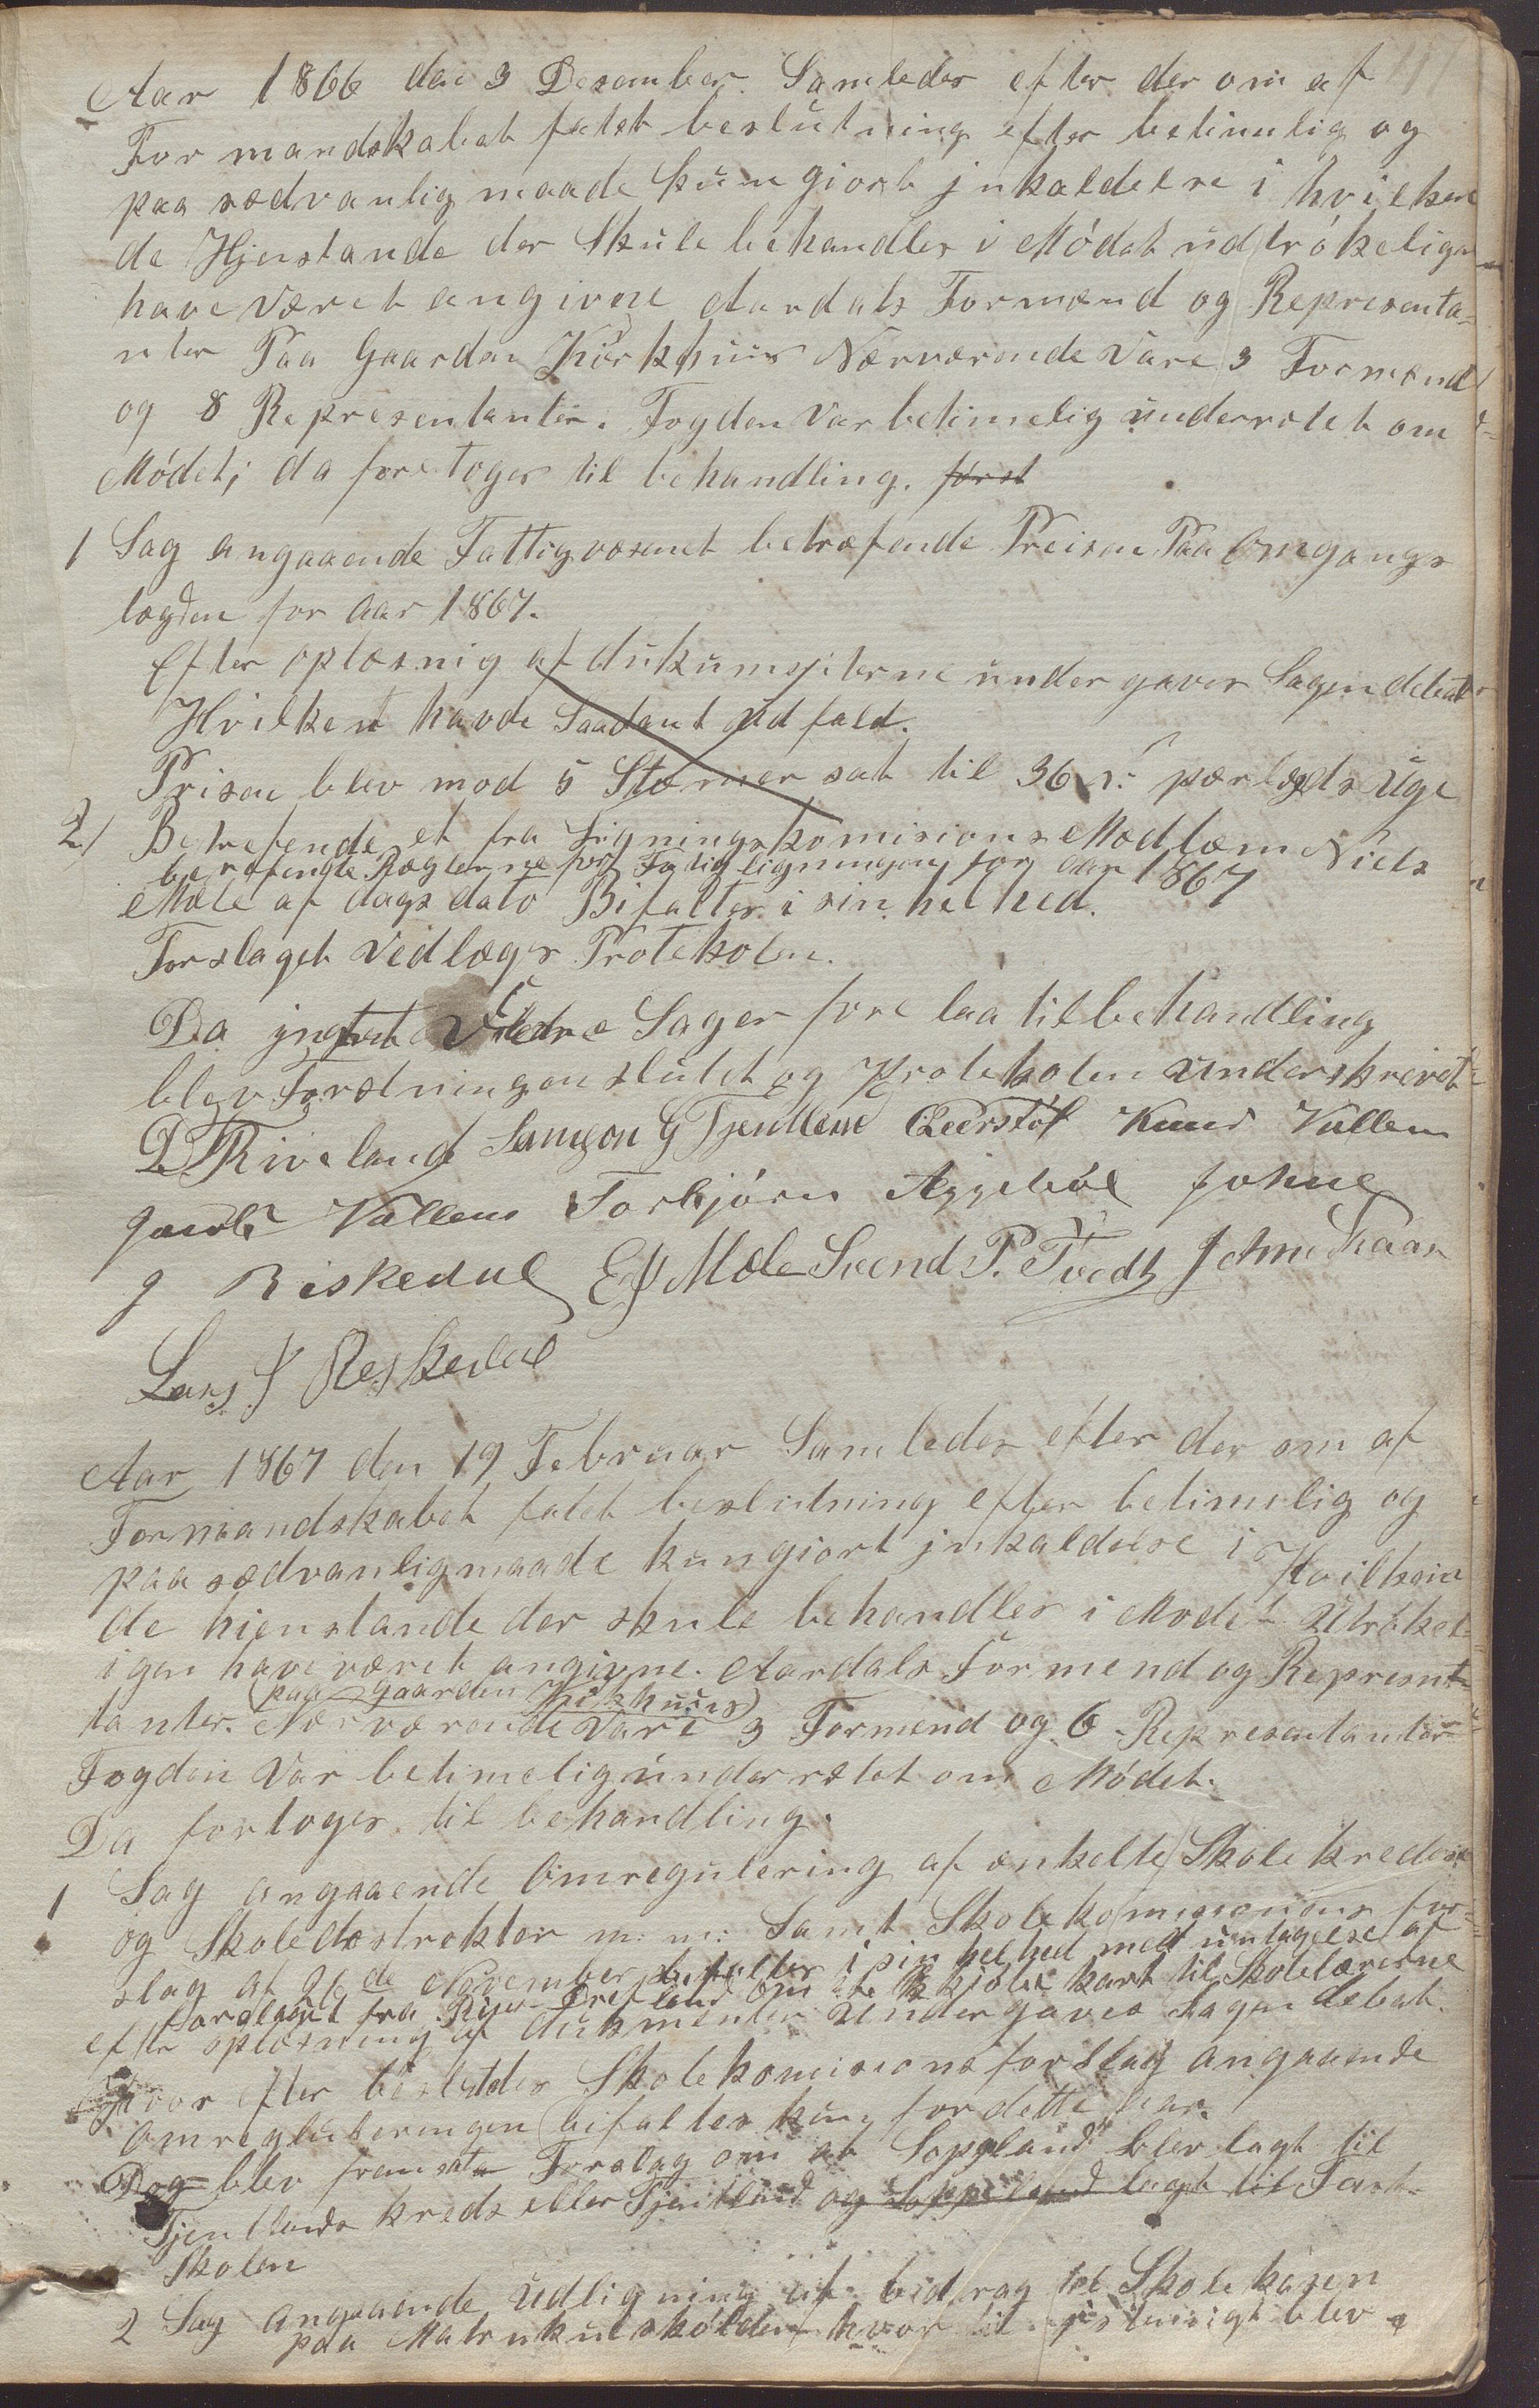 Aar 1866 den 3 Desember. Samledes efter der om af
Formandskabet fatet beslutning efter betimelig og
paa sædvanlig maade kungiort jnkaldelse i hvilken
de Hjenstande der Skule behandles i Mödet udtrökeligen
have været angivne Aardals Formænd og Representa-
nter Paa Gaarden Kirkhuus Nærværende Vare 3 Formænd
og 8 Representanter. Fogden Var betimelig underrætet om
Mödet; da foretoges til behandling. först
1 Sag angaaende Fattigvæsenet betræfende Preisen Paa Omgangs
lægden for Aar 1867.
Efter oplæsnig af dukumenterne under gaves Sagen debat
Hvilken havde Saadant udfald.
Prisen blev mod 5 Stæmer sat til 36 s: pær lægds Uge
2/ Betrefende et fra Ligningskomisions Medlæm Niels
betræfende Reglerne for Fatigligningen for Aar 1867
Mæle af dags dato Bifaltes i sin helhed.
Forslaget Vedlæges Protokolen.
Da jngen Videre Sager fore laa til behandling
blev Forætningen slutet og Protokolen Underskrevet
D T Riveland Samson G Tjentland Knud Vallem
Jacob Vallem Torbjörn Aggeböe Johne
J Riskedal E J Mæle Svend P. Tvedt John Kaar
Lars J Reskedal
Aar 1867 den 19 Februar Samledes efter der om af
Formandskabet fatet beslutning efter betimelig og
paa sædvanlig maade kungiort jnkaldelse i Hvilken
de hienstande der skule behandles i Mödet Utrökel-
igen have været angivne. Aardals Formend og Represent-
(paa gaarden Kirkhuus)
tanter. Nærværende Vare 3 Formend og 6 Representanter
Fogden Var betimelig underrætet om Mödet.
Da fortoges til behandling.
1 Sag angaaende Omregulering af enkelte Skole kredse
og Skoledestrekter m: m: Samt Skolekomisionens for-
slag af 26de November bifaltes i sin helhed med untagelse af
forslaget fra om at kjöbe kart til Skolelærerne
efter oplæsning af dukumenter Undergaves Sagen debat.
Hvor efter besluttedes Skolekomisions forslag angaaende
omregluleringen bifaltes kun for dette aar.
Dog blev fremsatte Forslag om at Soppland blev lagt til
Tjentlands kreds eller Tjentland og Soppeland lagt til Fast-
Skolen
2 Sag angaaende Udligning af bidrag til Skolekasen
paa Matrukulskölden hvor til blev